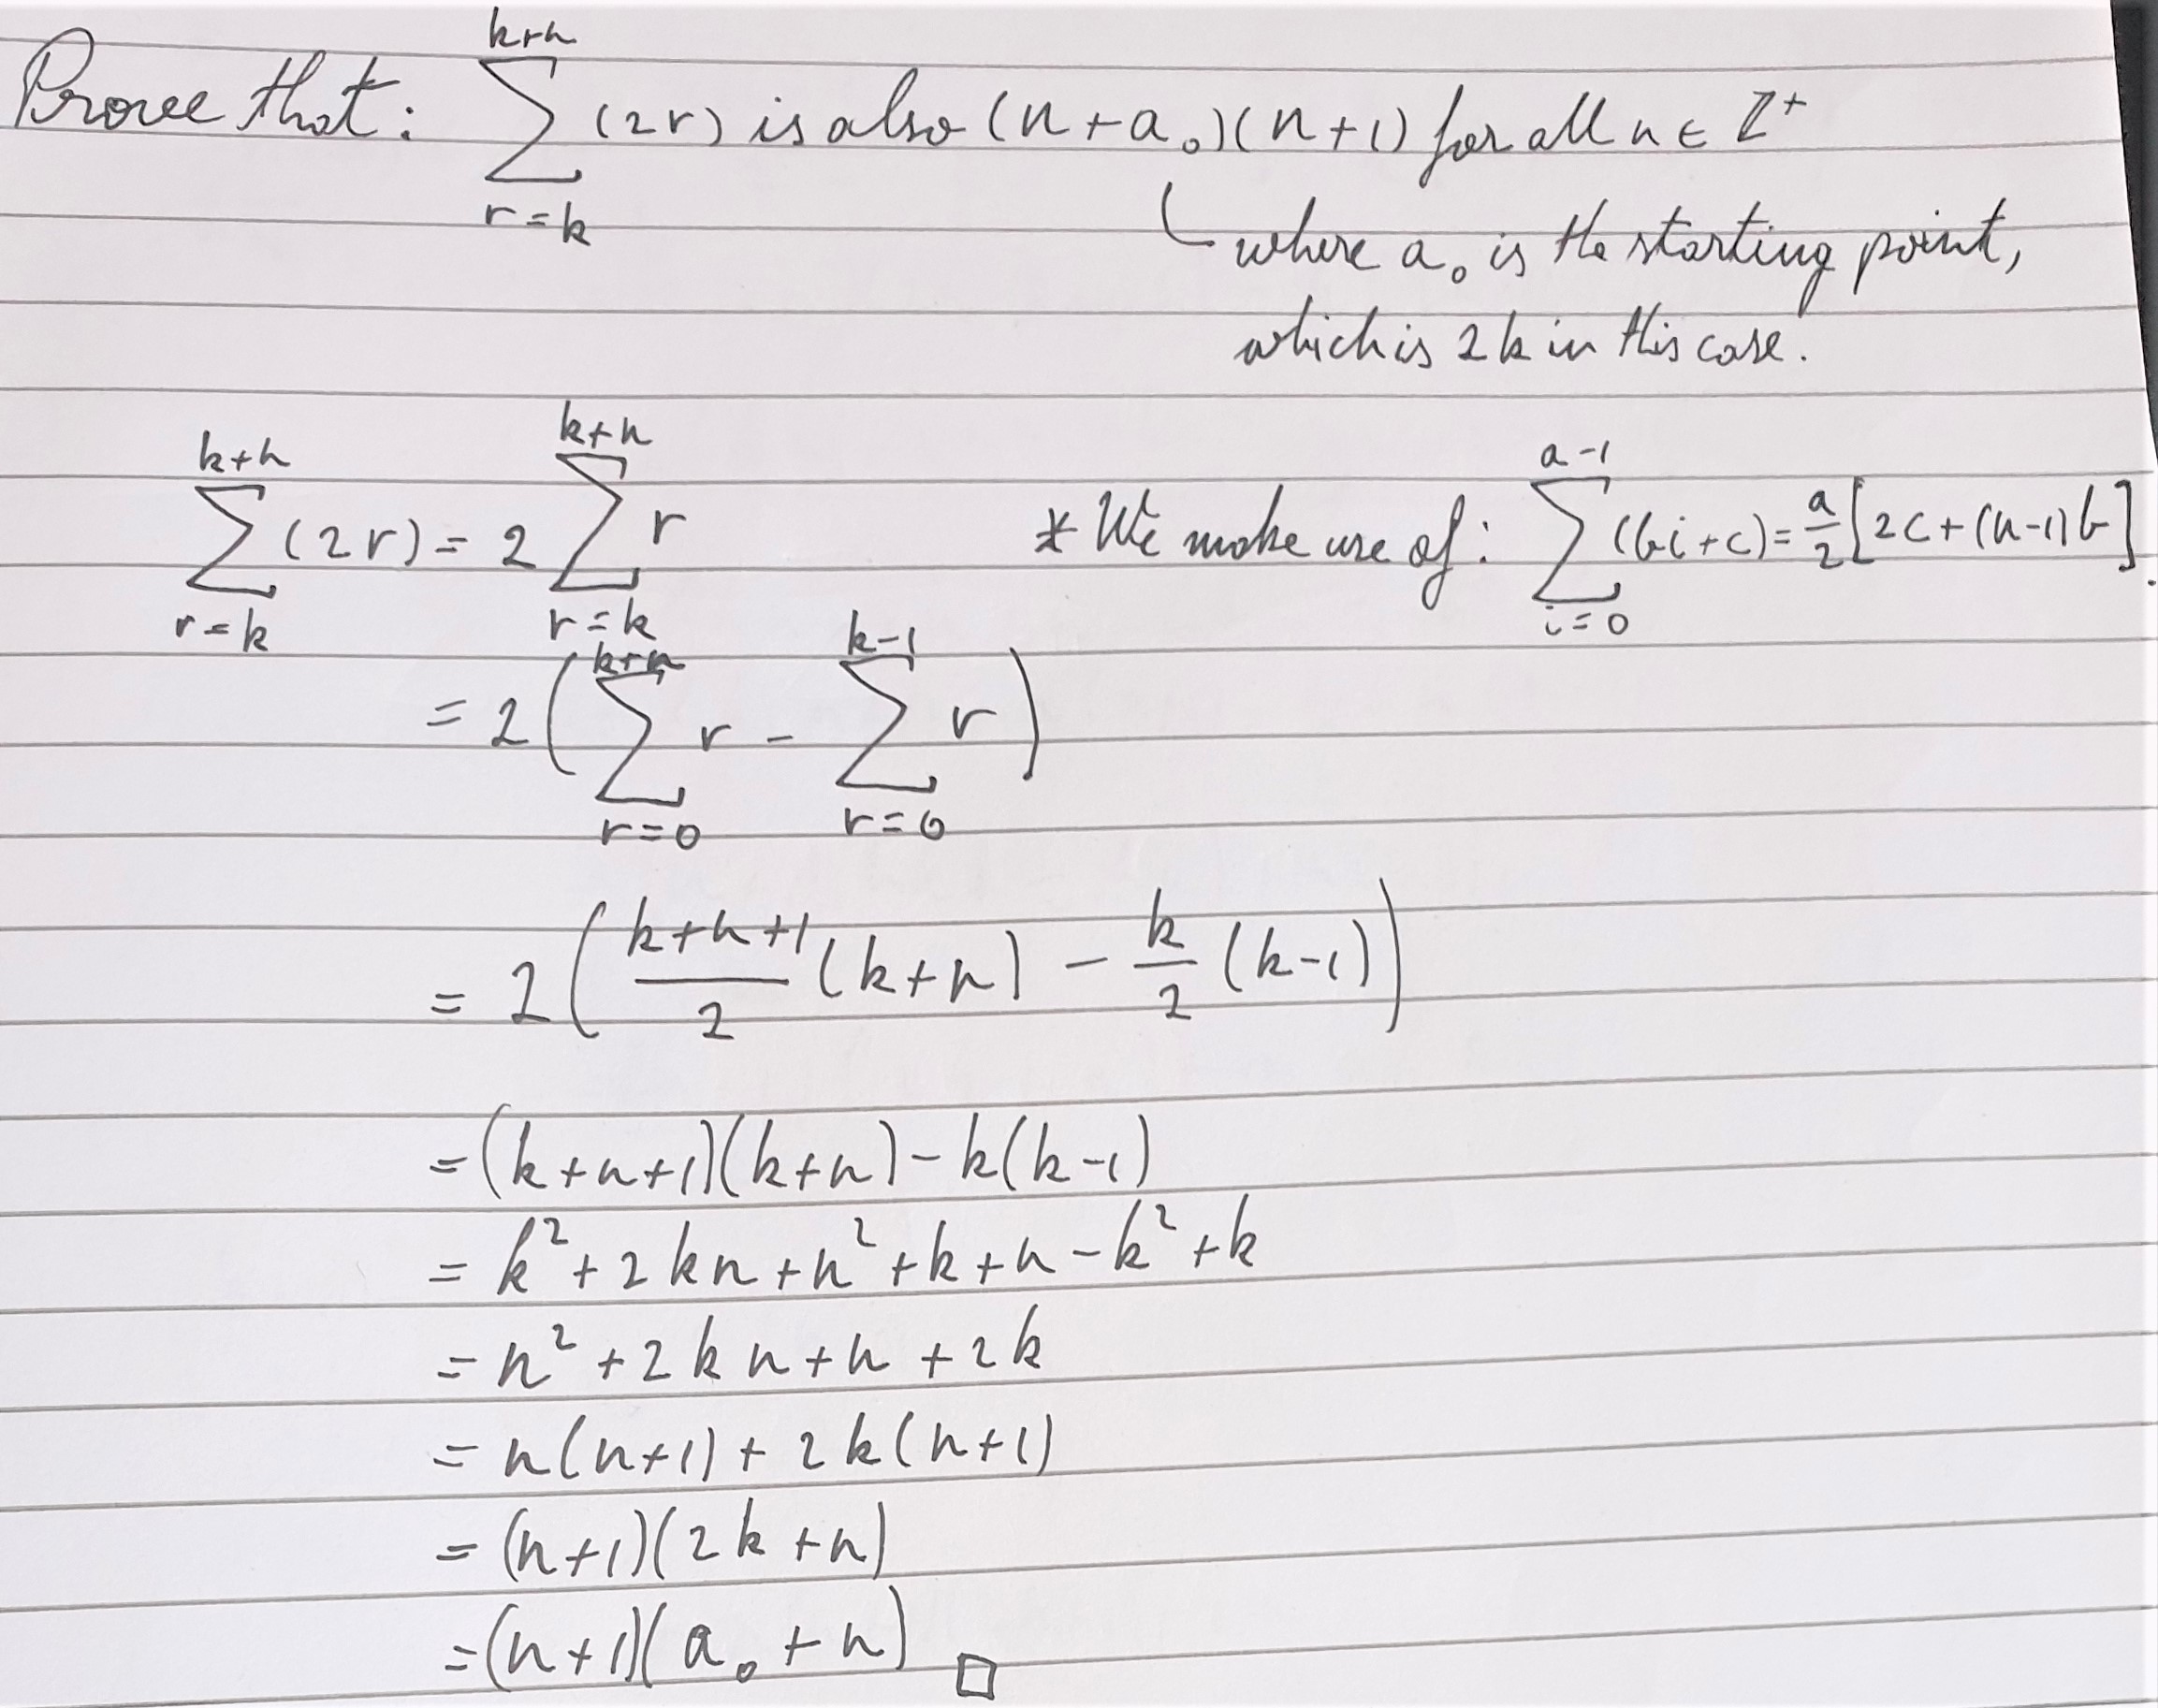 Prove that: \sum_{r=k}^{k+n} (2r) is also (n+a_0)(n+1) for all n ∈ ℤ^+
where a_0 is the starting point,
which is 2k in this case.
\sum_{r=k}^{k+n} (2r) = 2 \sum_{r=k}^{k+n} r * We make use of: \sum_{i=0}^{a-1} (bi+c) = \frac{a}{2} [2c+(n-1)b].
= 2 ( \sum_{r=0}^{k+n} r - \sum_{r=0}^{k-1} r )
= 2 ( \frac{k+n+1}{2} (k+n) - \frac{k}{2} (k-1) )
= (k+n+1)(k+n) - k(k-1)
= k^2 + 2kn + n^2 + k + n - k^2 + k
= n^2 + 2kn + n + 2k
= n(n+1) + 2k(n+1)
= (n+1)(2k+n)
= (n+1)(a_0+n) □